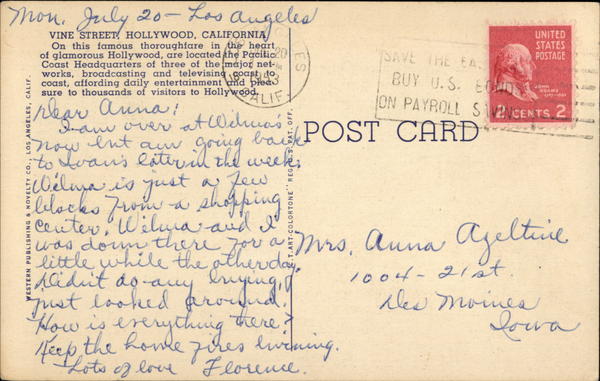 Mon. July 20 - Los Angeles
VINE STREET, HOLLYWOOD, CALIFORNIA
On this famous thoroughfare in the heart
of glamorous Hollywood, are located the Pacific
Coast Headquarters of three of the major net-
works, broadcasting and television coast to
coast, affording daily entertainment and plea-
sure to thousands of visitors to Hollywood.
Dear Anna:
I am over at Wilma's
now but am going back
to Ivan's later in the week.
Wilma is just a few
blocks from a shopping
center. Wilma and I
was down there for a
little while the other day.
Didn't do any buying,
just looked around.
How is everything there?
Keep the home fires burning.
Lots of love Florence.
WESTERN PUBLISHING & NOVELTY CO., LOS ANGELES, CALIF.
"C.T. ART-COLORTONE" REG. U.S. PAT. OFF.
POST CARD
20
CALIF.
SAVE THE EA
BUY U.S.
ON PAYROLL
UNITED
STATES
POSTAGE
JOHN
ADAMS
2 CENTS 2
Mrs. Anna Azeltine
1004 - 21st.
Des Moines
Iowa